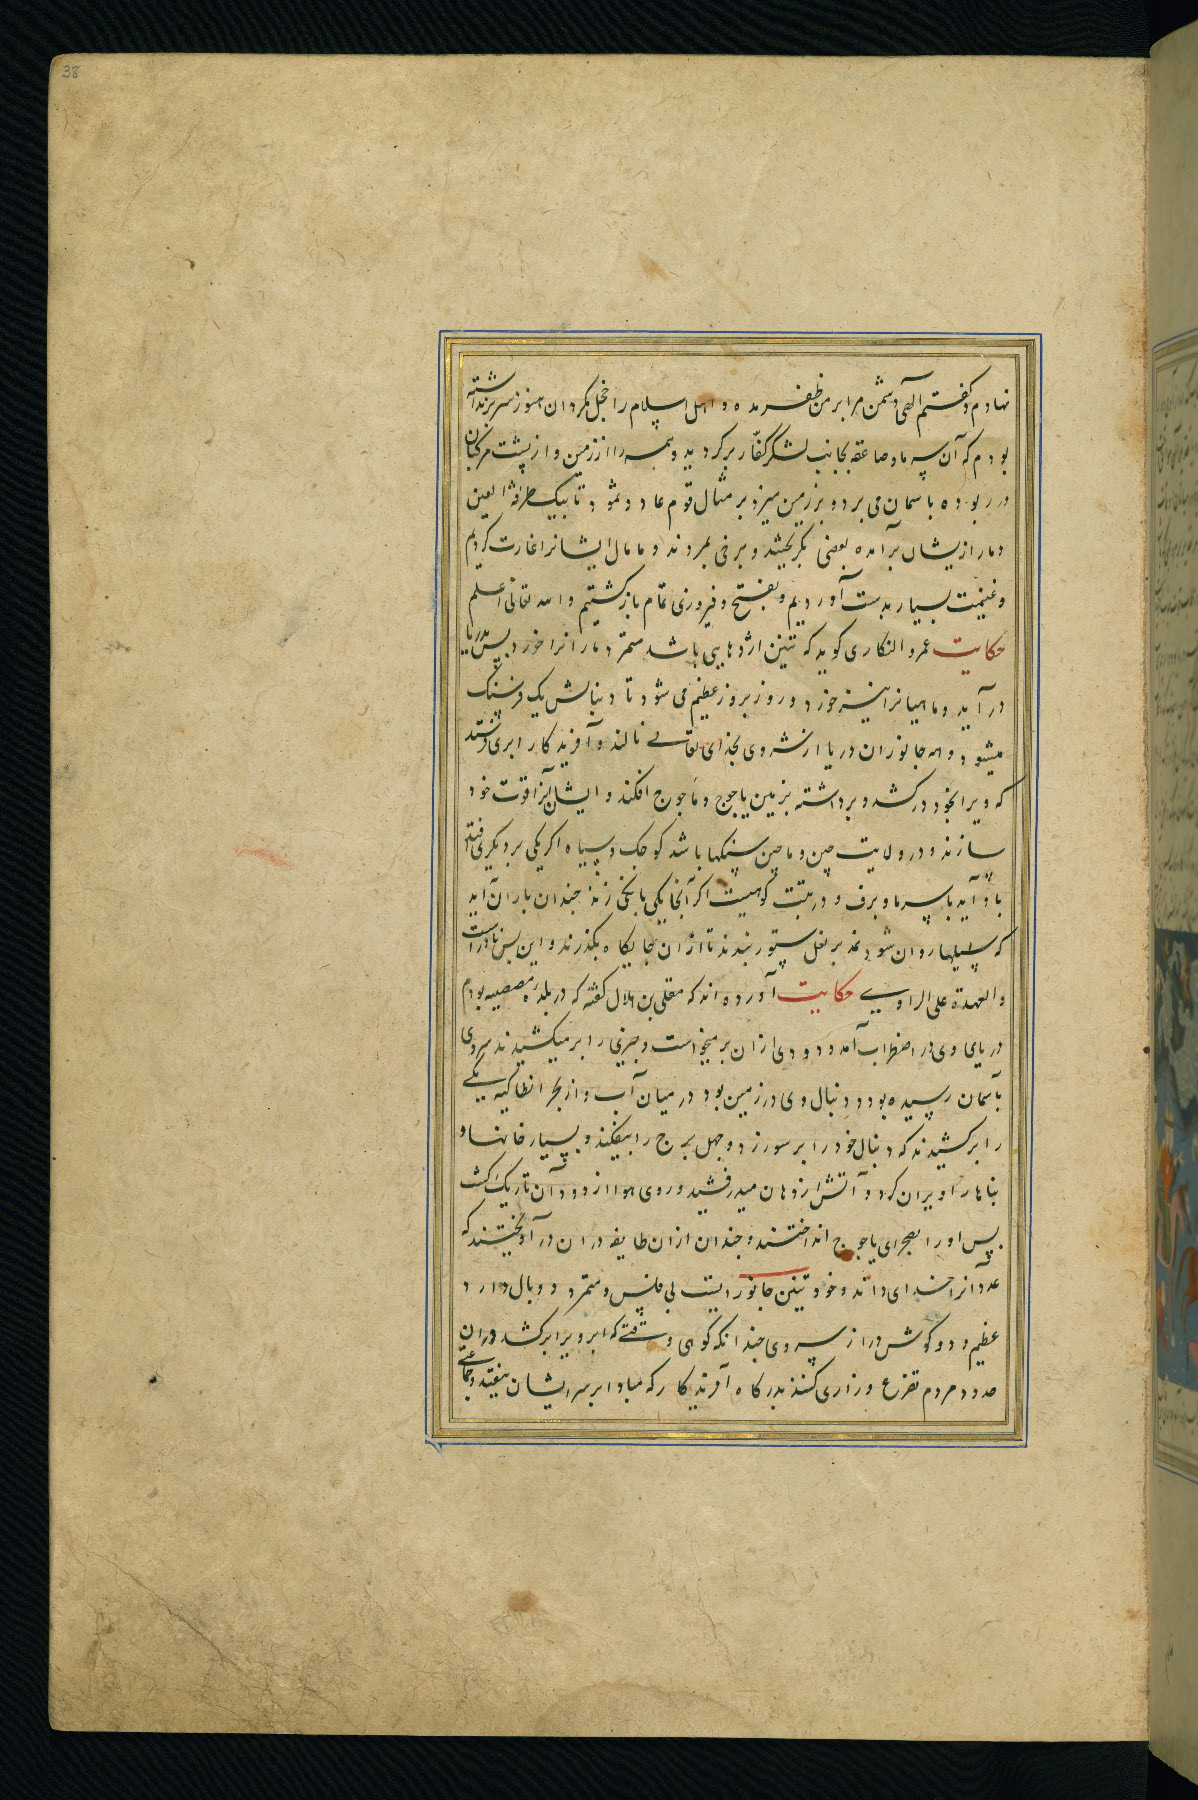 38
نهادم و گفتم الهی دشمن مرا بر من ظفر مده و اهل اسلام را خجل مگردان هنوز سر برنداشته
بودم که آن سرما و صاعقه بجانب لشکر کفار برگردید و همه را از زمین و از پشت مرکبان
در ربوده باسمان می برد و بر زمین میزد بر مثال قوم عاد و ثمود تا بیک طرفة العین
دمار ازیشان برآمده بعضی بگریختند و برخی بمردند و ما مال ایشانرا غارت کردیم
و غنیمت بسیار بدست آوردیم و بفتح و فیروزی تمام بازگشتیم والله تعالی اعلم
حکایت عمرو النکاری گوید که تنین اژدهایی باشد متمرد مارانرا خورد پس بدریا
درآید و ماهیانرا نیز خورد و روز بروز عظیم می شود تا دنبالش یک فرسنگ
میشود و همه جانوران دریا از شر وی بخدای تعالی نالند و آفریدکار ابری فرستد
که ویرا بخود درکشد و برداشته بزمین یاجوج و ماجوج افکند و ایشان آنرا قوت خود
سازند و در ولایت چین و ماچین سنگها باشد کوچک و سیاه اگر یکی بر دیگری افتد
باد آید با سرما و برف و در تبت کوهیست اگر آنجا یکی بانگی زند چندان باران آید
که سیلها روان شود نمد بر نعل ستور بندند تا ازان جایگاه بگذرند و این بس نادر است
والعهدة علی الراوی حکایت آورده اند که معلی بن هلال گفته که در بلده مصیصه بودم
دریای وی در اضطراب آمد و دودی ازان برمیخواست و چیزی را برمیکشیدند سر وی
بآسمان رسیده بود و دنبال وی در زمین بود در میان آب و از بحر انطاکیه یکی
را برکشیدند که دنبال خود را بر سور زد و چهل برج را بیفکند و بسیار خانها و
بناها را ویران کرد و آتش از دهان میدرفشید و روی هوا از دود آن تاریک گشت
پس او را بصحرای یاجوج انداختند و چندان ازان طایفه دران درآویختند که
عدد آنرا خدای داند و خود تنین جانوریست بی فلس و متمرد و دو بال دارد
عظیم و دو گوش دراز سر وی چندانکه کوهی وقتی که ابر ویرا برکشد دران
حدود مردم تضرع و زاری کنند بدرگاه آفریدکار که مبادا بر سر ایشان بیفتد و جماعتی